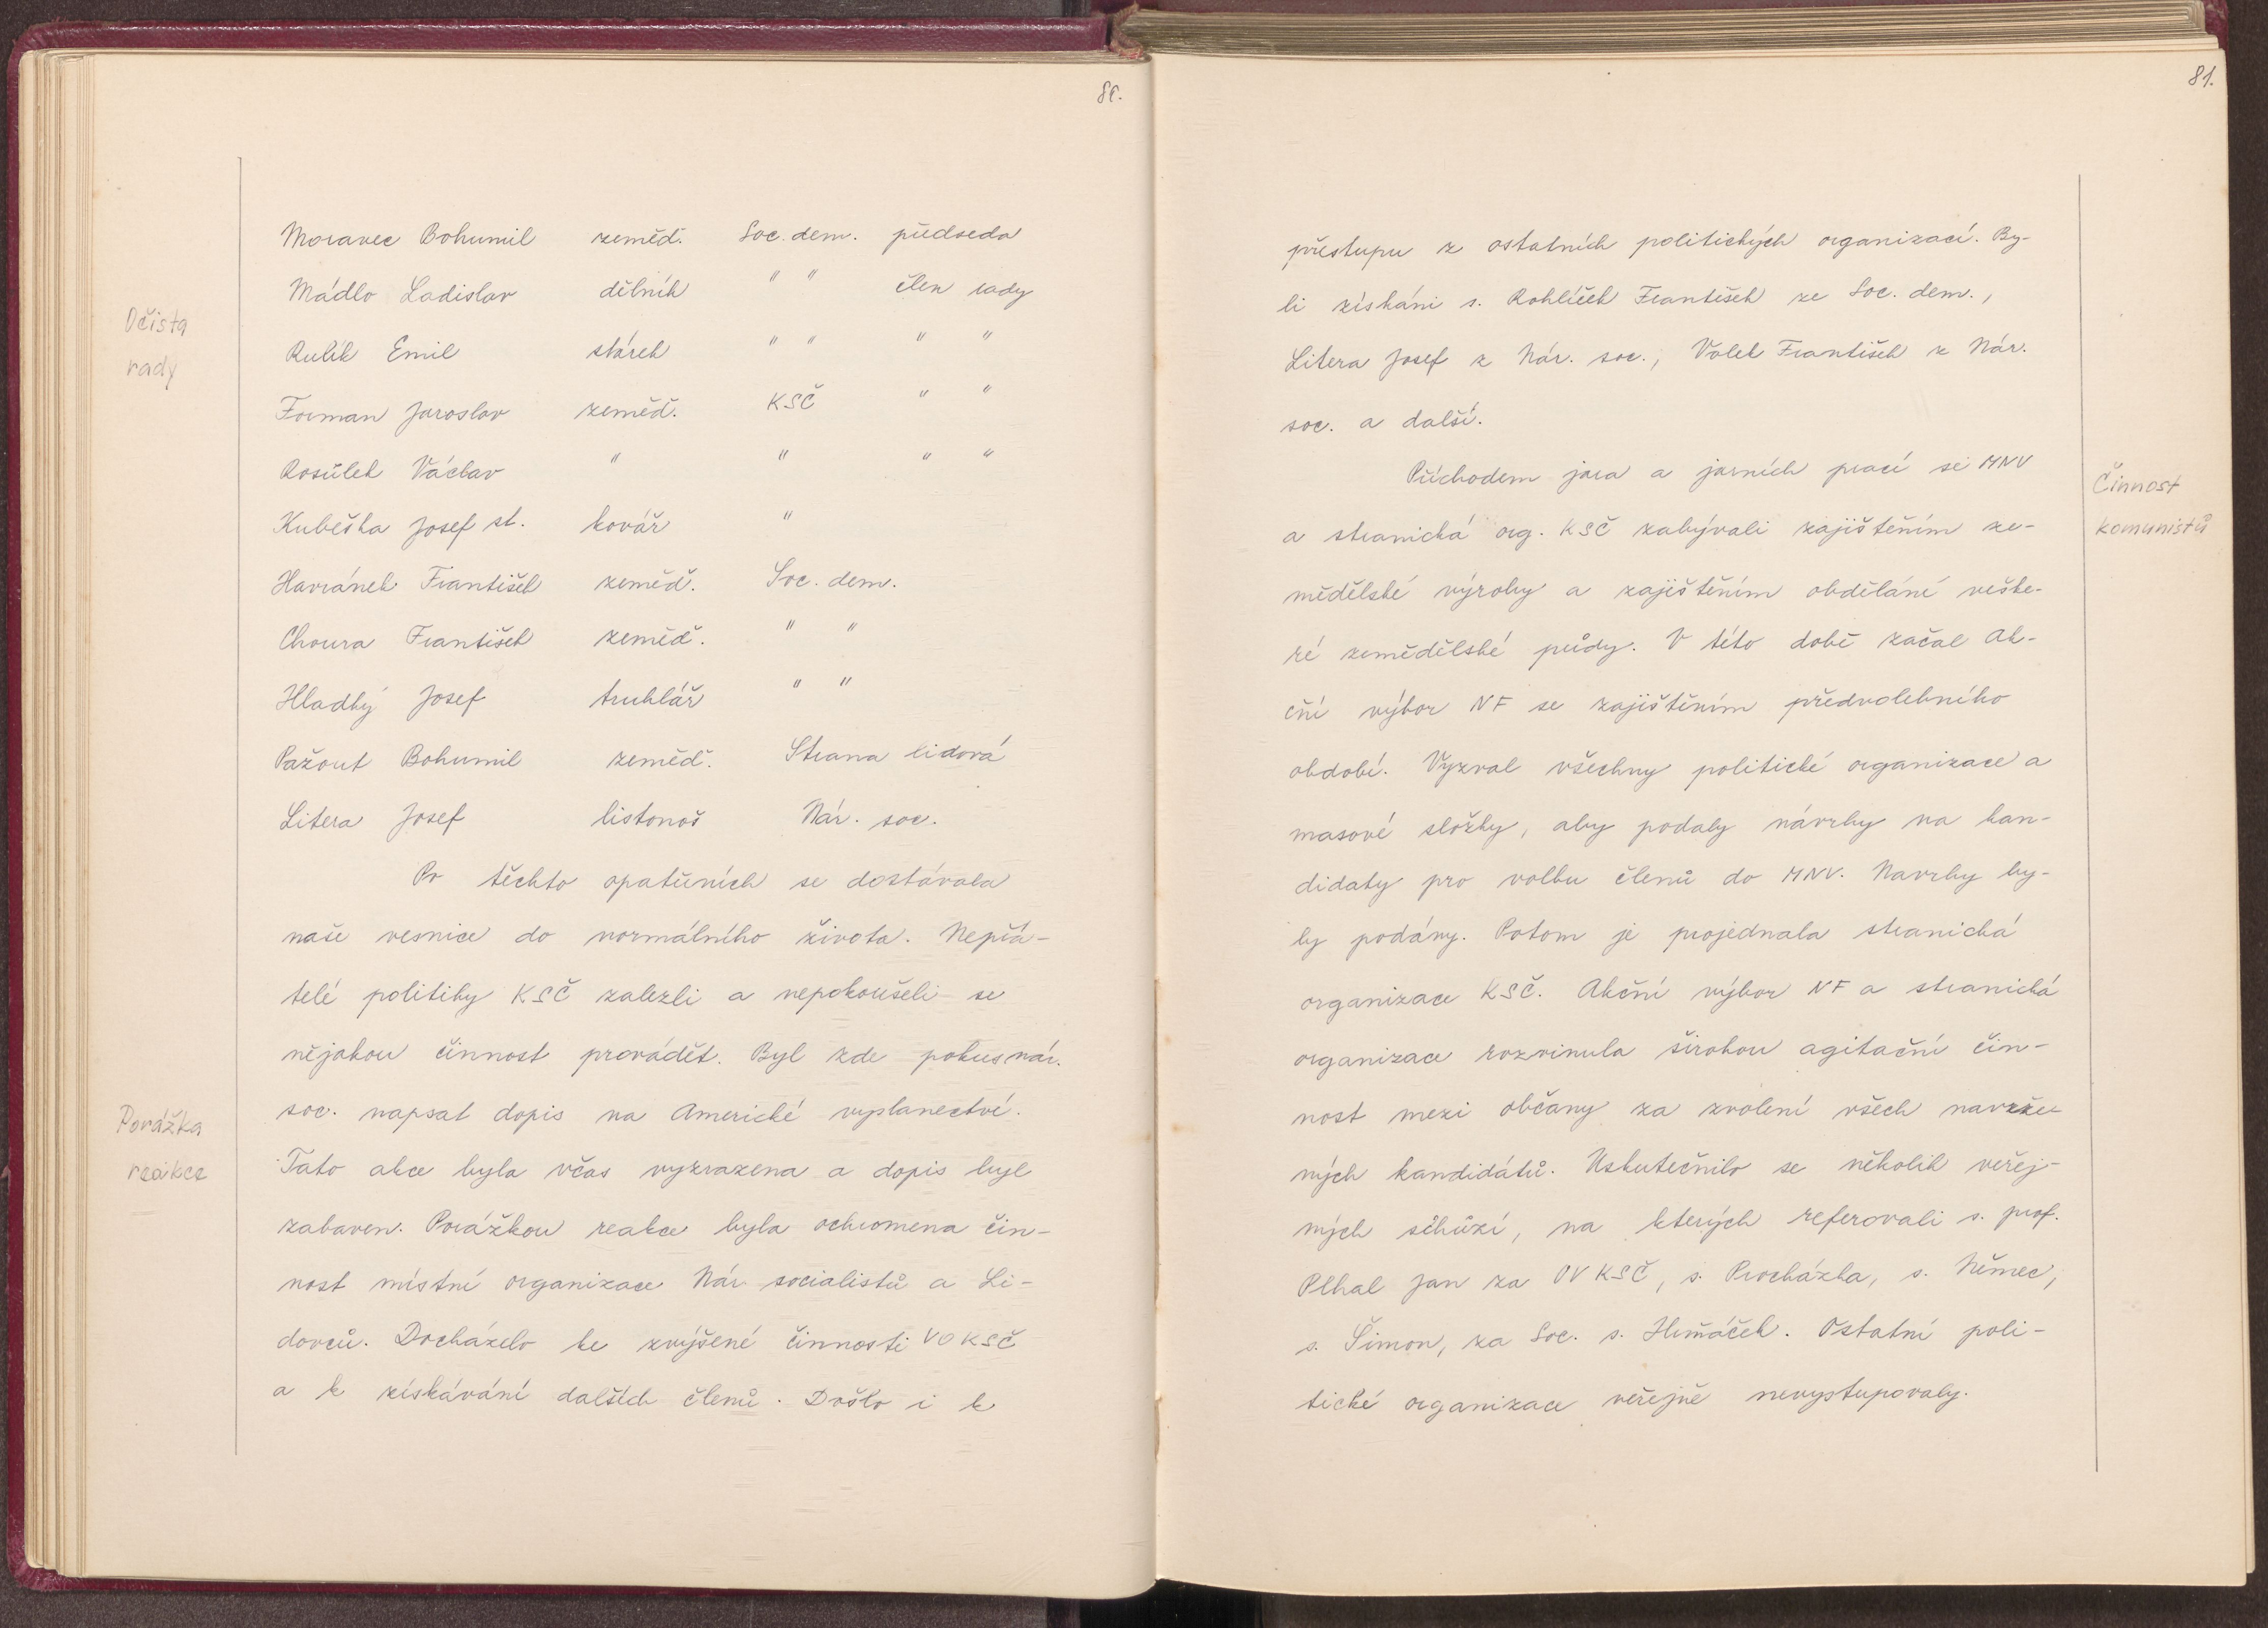 80.
Moravec Bohumil zeměd. Soc. dem. předseda
Mádlo Ladislav dělník " " člen rady
Očista
rady
Rulík Emil stárek " " " "
Forman Jaroslav zeměd. KSČ " "
Rosůlek Václav " " " "
Kubeška Josef st. kovář "
Havránek František zeměd. Soc. dem.
Choura František zeměd. " "
Hladký Josef truhlář " "
Pažout Bohumil zeměd. Strana lidová
Litera Josef listonoš Nár. soc.
Po těchto opatřeních se dostávala
naše vesnice do normálního života. Nepřá-
telé politiky KSČ zalezli a nepokoušeli se
nějakou činnost provádět. Byl zde pokus nár.
soc. napsat dopis na Americké vyslanectví.
Porážka
reakce
Tato akce byla včas vyzrazena a dopis byl
zabaven. Porážkou reakce byla ochromena čin-
nost místní organizace Nár. socialistů a Li-
dovců. Docházelo ke zvýšené činnosti VO KSČ
a k získávání dalších členů. Došlo i k
81.
přestupu z ostatních politických organizací. By-
li získáni s. Rohlíček František ze Soc. dem.,
Litera Josef z Nár. soc., Volek František z Nár.
soc. a další.
Příchodem jara a jarních prací se MNV
Činnost
komunistů
a stranická org. KSČ zabývali zajištěním ze-
mědělské výroby a zajištěním obdělání veške-
ré zemědělské půdy. V této době začal Ak-
ční výbor NF se zajištěním předvolebního
období. Vyzval všechny politické organizace a
masové složky, aby podaly návrhy na kan-
didaty pro volbu členů do MNV. Navrhy by-
ly podány. Potom je projednala stranická
organizace KSČ. Akční výbor NF a stranická
organizace rozvinula širokou agitační čin-
nost mezi občany za zvolení všech navrže-
ných kandidátů. Uskutečnilo se několik veřej-
ných schůzí, na kterých referovali s. prof.
Plhal Jan za OV KSČ, s. Procházka, s. Němec,
s. Šimon, za Soc. s. Hrnáček. Ostatní poli-
tické organizace veřejně nevystupovaly.